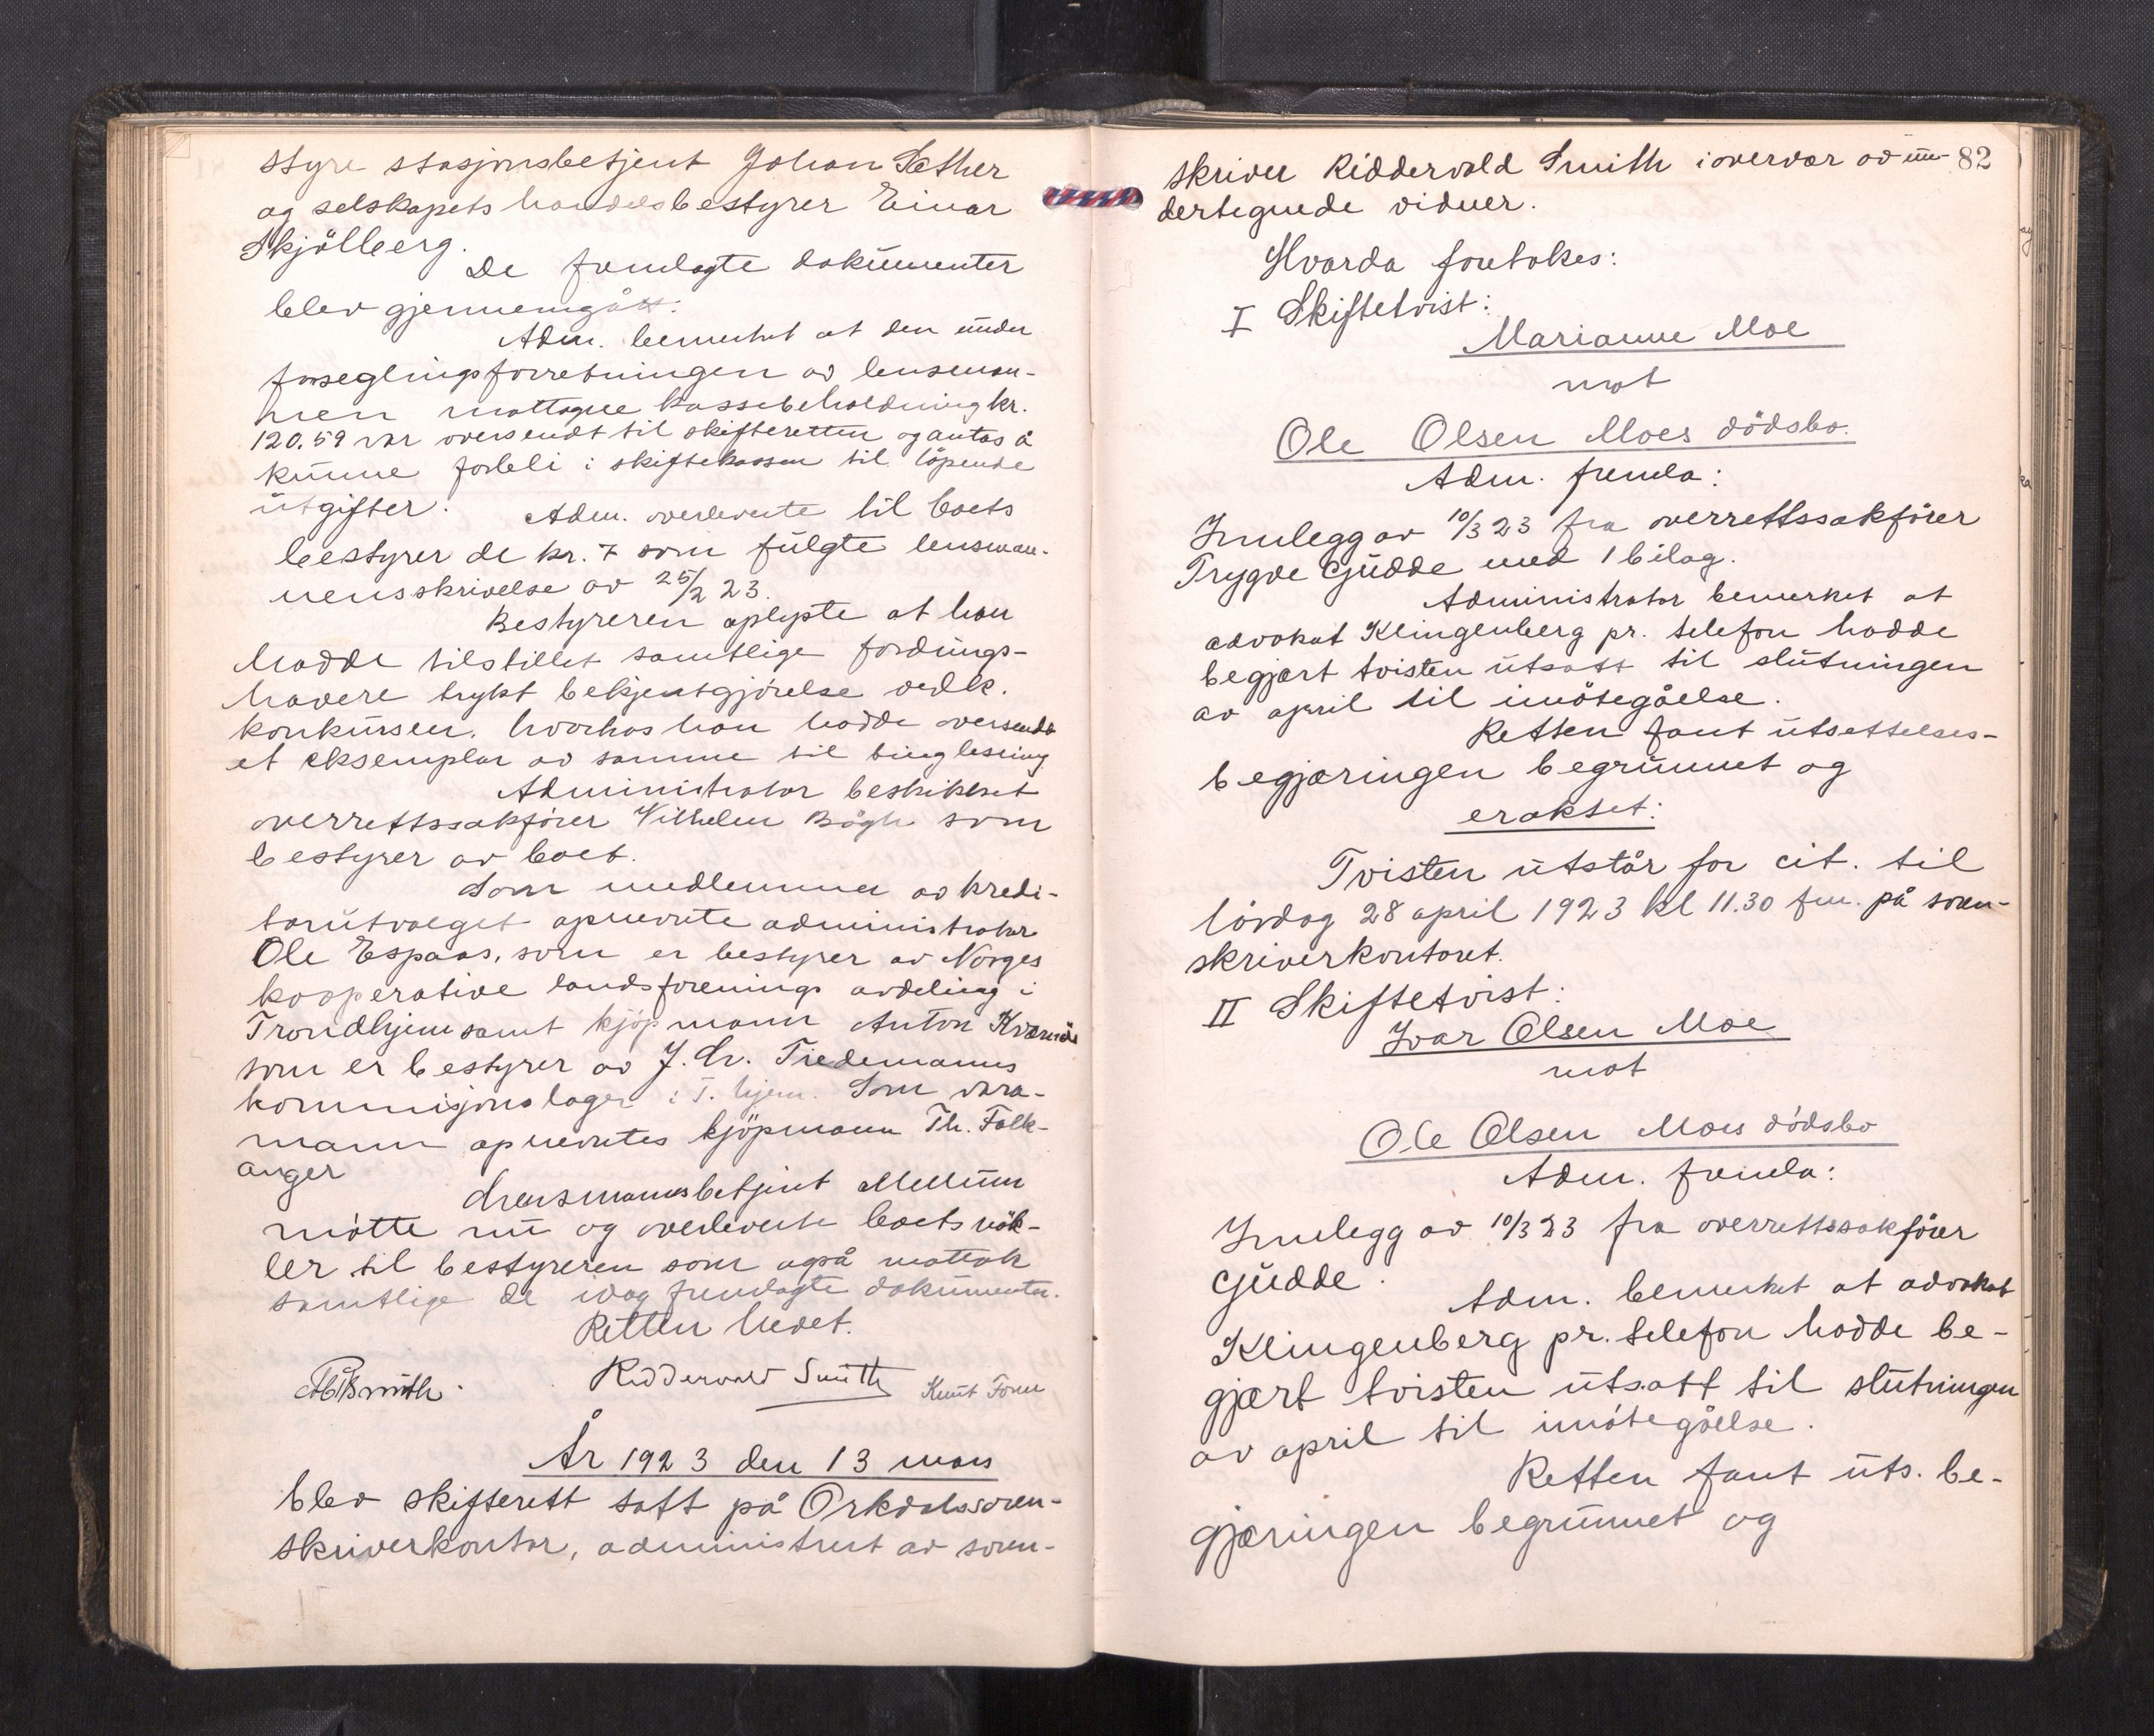 styre stasjonsbetjent Johan Sæther
og selskapets handelsbestyrer Einar
Skjölberg.
De fremlagte dokumenter
blev gjennemgått.
Adm. bemerket at den under
forseglingsforretningen av lensman-
nen mottagne kassebeholdning kr.
120.59 var oversendt til skifteretten og antas å
kunne forbli i skiftekassen til löpende
utgifter.
Adm. overleverte til boets
bestyrer de kr. 7 som fulgte lensman-
nens skrivelse av 25/2 23.
Bestyreren oplyste at han
hadde tilstillet samtlige fordrings-
havere trykt bekjentgjörelse vedk.
konkursen, hvorhos han hadde oversendt
et eksemplar av samme til tinglesning
Administrator beskikket
overrettssakförer Vilhelm Bögh som
bestyrer av boet.
Som medlemmer av kredi-
torutvalget opnevnte administrator
Ole Espaas, som er bestyrer av Norges
kooperative landsforenings avdeling i
Trondhjem samt kjöpmann Anton
som er bestyrer av J. Chr. Tiedemanns
kommisjonslager i T.hjem. Som vara-
mann opnevntes kjöpmann Th. Falk-
anger
Lensmannsbetjent Mellum
mötte nu og overleverte boets nök-
ler til bestyreren som også mottok
samtlige de idag fremlagte dokumenter.
Retten hevet.
Riddervold Smith Knut
År 1923 den 13 mars
blev skifterett satt på Orkdal soren-
skriverkontor, administrert av soren-
82
skriver Riddervold Smith i overvær av un-
dertegnede vidner.
Hvorda foretokes:
I Skiftetvist:
Marianne Moe
mot
Ole Olsen Moes dödsbo.
Adm. fremla:
Innlegg av 10/3 23 fra overrettssakförer
Trygve Gudde med 1 bilag.
Administrator bemerket at
advokat Klingenberg pr. telefon hadde
begjært tvisten utsatt til slutningen
av april til imötegåelse.
Retten fant utsettelses-
begjæringen begrunnet og
erakset:
Tvisten utstår for cit. til
lördag 28 april 1923 kl 11.30 fm. på soren-
skriverkontoret.
II Skiftetvist:
Ivar Olsen Moe
mot
Ole Olsen Moes dödsbo
Adm. fremla:
Innlegg av 10/3 23 fra overrettssakförer
Gudde.
Adm. bemerket at advokat
Klingenberg pr. telefon hadde be-
gjært tvisten utsatt til slutningen
av april til imötegåelse.
Retten fant uts. be-
gjæringen begrunnet og